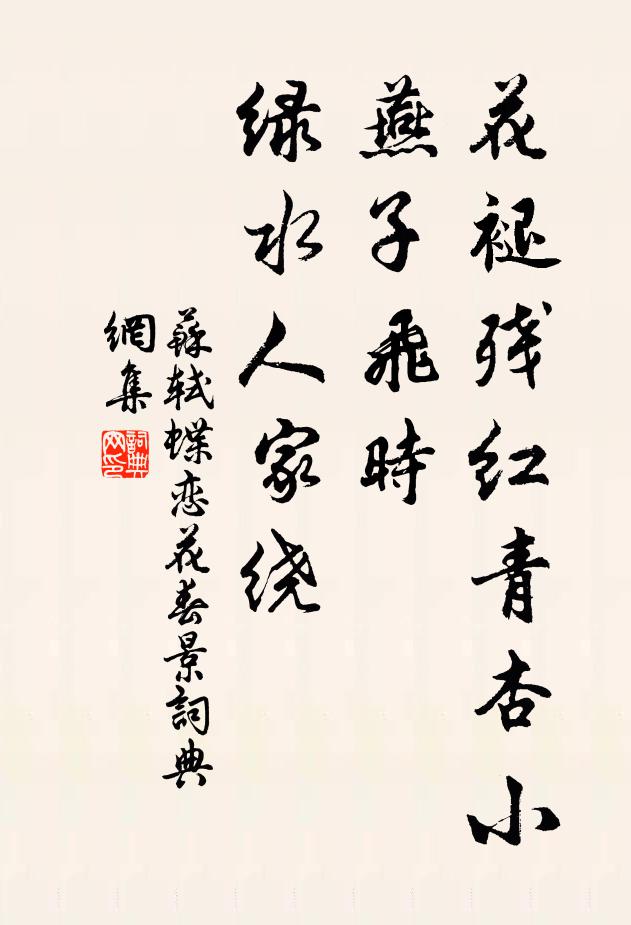 花褪残红青杏小
燕子飛時
绿水人家绕
蘇軾蝶恋花春景詞典
網集
詞典
网印